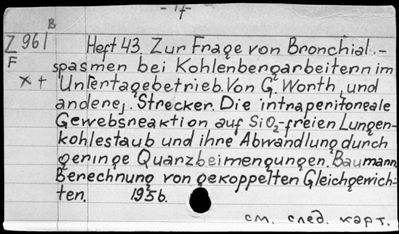 - 17 -
B
Z 961 Heft 43. Zur Frage von Bronchial.-
F spasmen bei Kohlenbergarbeitern im
x + Untertagebetrieb. Von G. Worth, und
andere,. Strecker. Die intraperitoneale
Gewebsreaktion auf SiO₂-freien Lungen-
kohlestaub und ihre Abwandlung durch
geringe Quarzbeimengungen. Baumann
Berechnung von gekoppelten Gleichgewich-
ten. 1956.
см. след. карт.